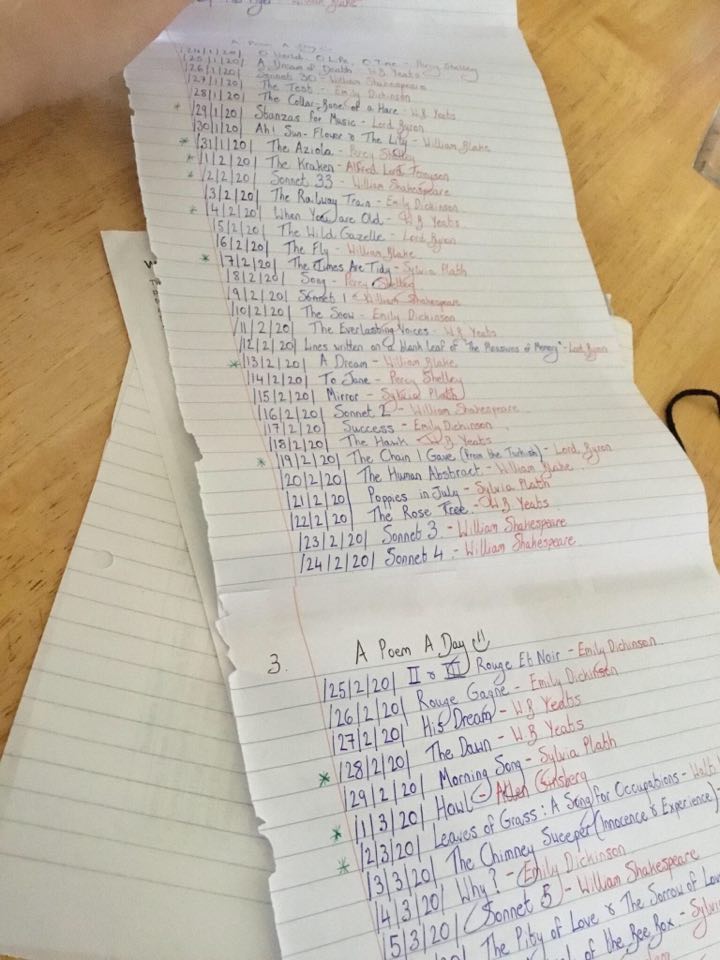 William Blake
A Poem A Day
|24/1/20| O World, O Life, O Time - Percy Shelley
|25/1/20| A Dream of Death - W.B Yeats
|26/1/20| Sonnet 30 - William Shakespeare
|27/1/20| The Test - Emily Dickinson
|28/1/20| The Collar-Bone of a Hare - W.B Yeats
* |29/1/20| Stanzas for Music - Lord Byron
|30/1/20| Ah! Sun-Flower & The Lily - William Blake
* |31/1/20| The Aziola - Percy Shelley
* |1/2/20| The Kraken - Alfred Lord Tennyson
* |2/2/20| Sonnet 33 - William Shakespeare
|3/2/20| The Railway Train - Emily Dickinson
* |4/2/20| When You are Old - W.B Yeats
|5/2/20| The Wild Gazelle - Lord Byron
|6/2/20| The Fly - William Blake
* |7/2/20| The Times Are Tidy - Sylvia Plath
|8/2/20| Song - Percy Shelley
|9/2/20| Sonnet 1 - William Shakespeare
|10/2/20| The Snow - Emily Dickinson
|11/2/20| The Everlasting Voices - W.B Yeats
|12/2/20| Lines written on a blank leaf of "The Pleasures of Memory" - Lord Byron
* |13/2/20| A Dream - William Blake
|14/2/20| To Jane - Percy Shelley
|15/2/20| Mirror - Sylvia Plath
|16/2/20| Sonnet 2 - William Shakespeare
|17/2/20| Success - Emily Dickinson
|18/2/20| The Hawk - W.B Yeats
* |19/2/20| The Chain I Gave (From the Turkish) - Lord Byron
|20/2/20| The Human Abstract - William Blake
|21/2/20| Poppies in July - Sylvia Plath
|22/2/20| The Rose Tree - W.B Yeats
|23/2/20| Sonnet 3 - William Shakespeare
|24/2/20| Sonnet 4 - William Shakespeare
3. A Poem A Day
|25/2/20| II & III Rouge Et Noir - Emily Dickinson
|26/2/20| Rouge Gagne - Emily Dickinson
|27/2/20| His Dream - W.B Yeats
* |28/2/20| The Dawn - W.B Yeats
|29/2/20| Morning Song - Sylvia Plath
* |1/3/20| Howl - Allen Ginsberg
* |2/3/20| Leaves of Grass: A Song for Occupations - Walt
|3/3/20| The Chimney Sweeper (Innocence & Experience) -
|4/3/20| Why? - Emily Dickinson
|5/3/20| Sonnet 5 - William Shakespeare
The Pity of Love & The Sorrow of Love
of the Bee Box - Sylvia